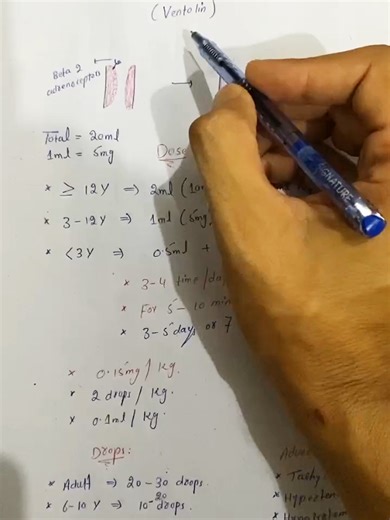 (Ventolin)
Beta 2
adrenoceptors
Total = 20ml
1ml = 5mg
Dose
* ≥ 12Y ⇒ 2ml (10
* 3-12Y ⇒ 1ml (5mg
* <3Y ⇒ 0.5ml +
* 3-4 time/day
* For 5-10 min
* 3-5 days or 7
* 0.15mg/Kg.
* 2 drops/Kg.
* 0.1ml/Kg.
Drops:
* Adult ⇒ 20-30 drops.
* 6-10Y ⇒ 10-20 drops.
Adver
* Tachy
* Hyperten
* Hypoten
SIGNATURE